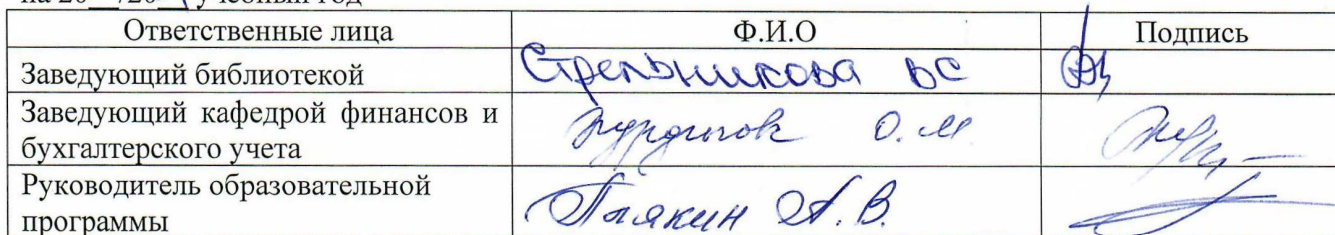 учебный год
Ответственные лица Ф.И.О Подпись
Заведующий библиотекой Стрельникова ВС
Заведующий кафедрой финансов и О.М
бухгалтерского учета
Руководитель образовательной
программы А.В.